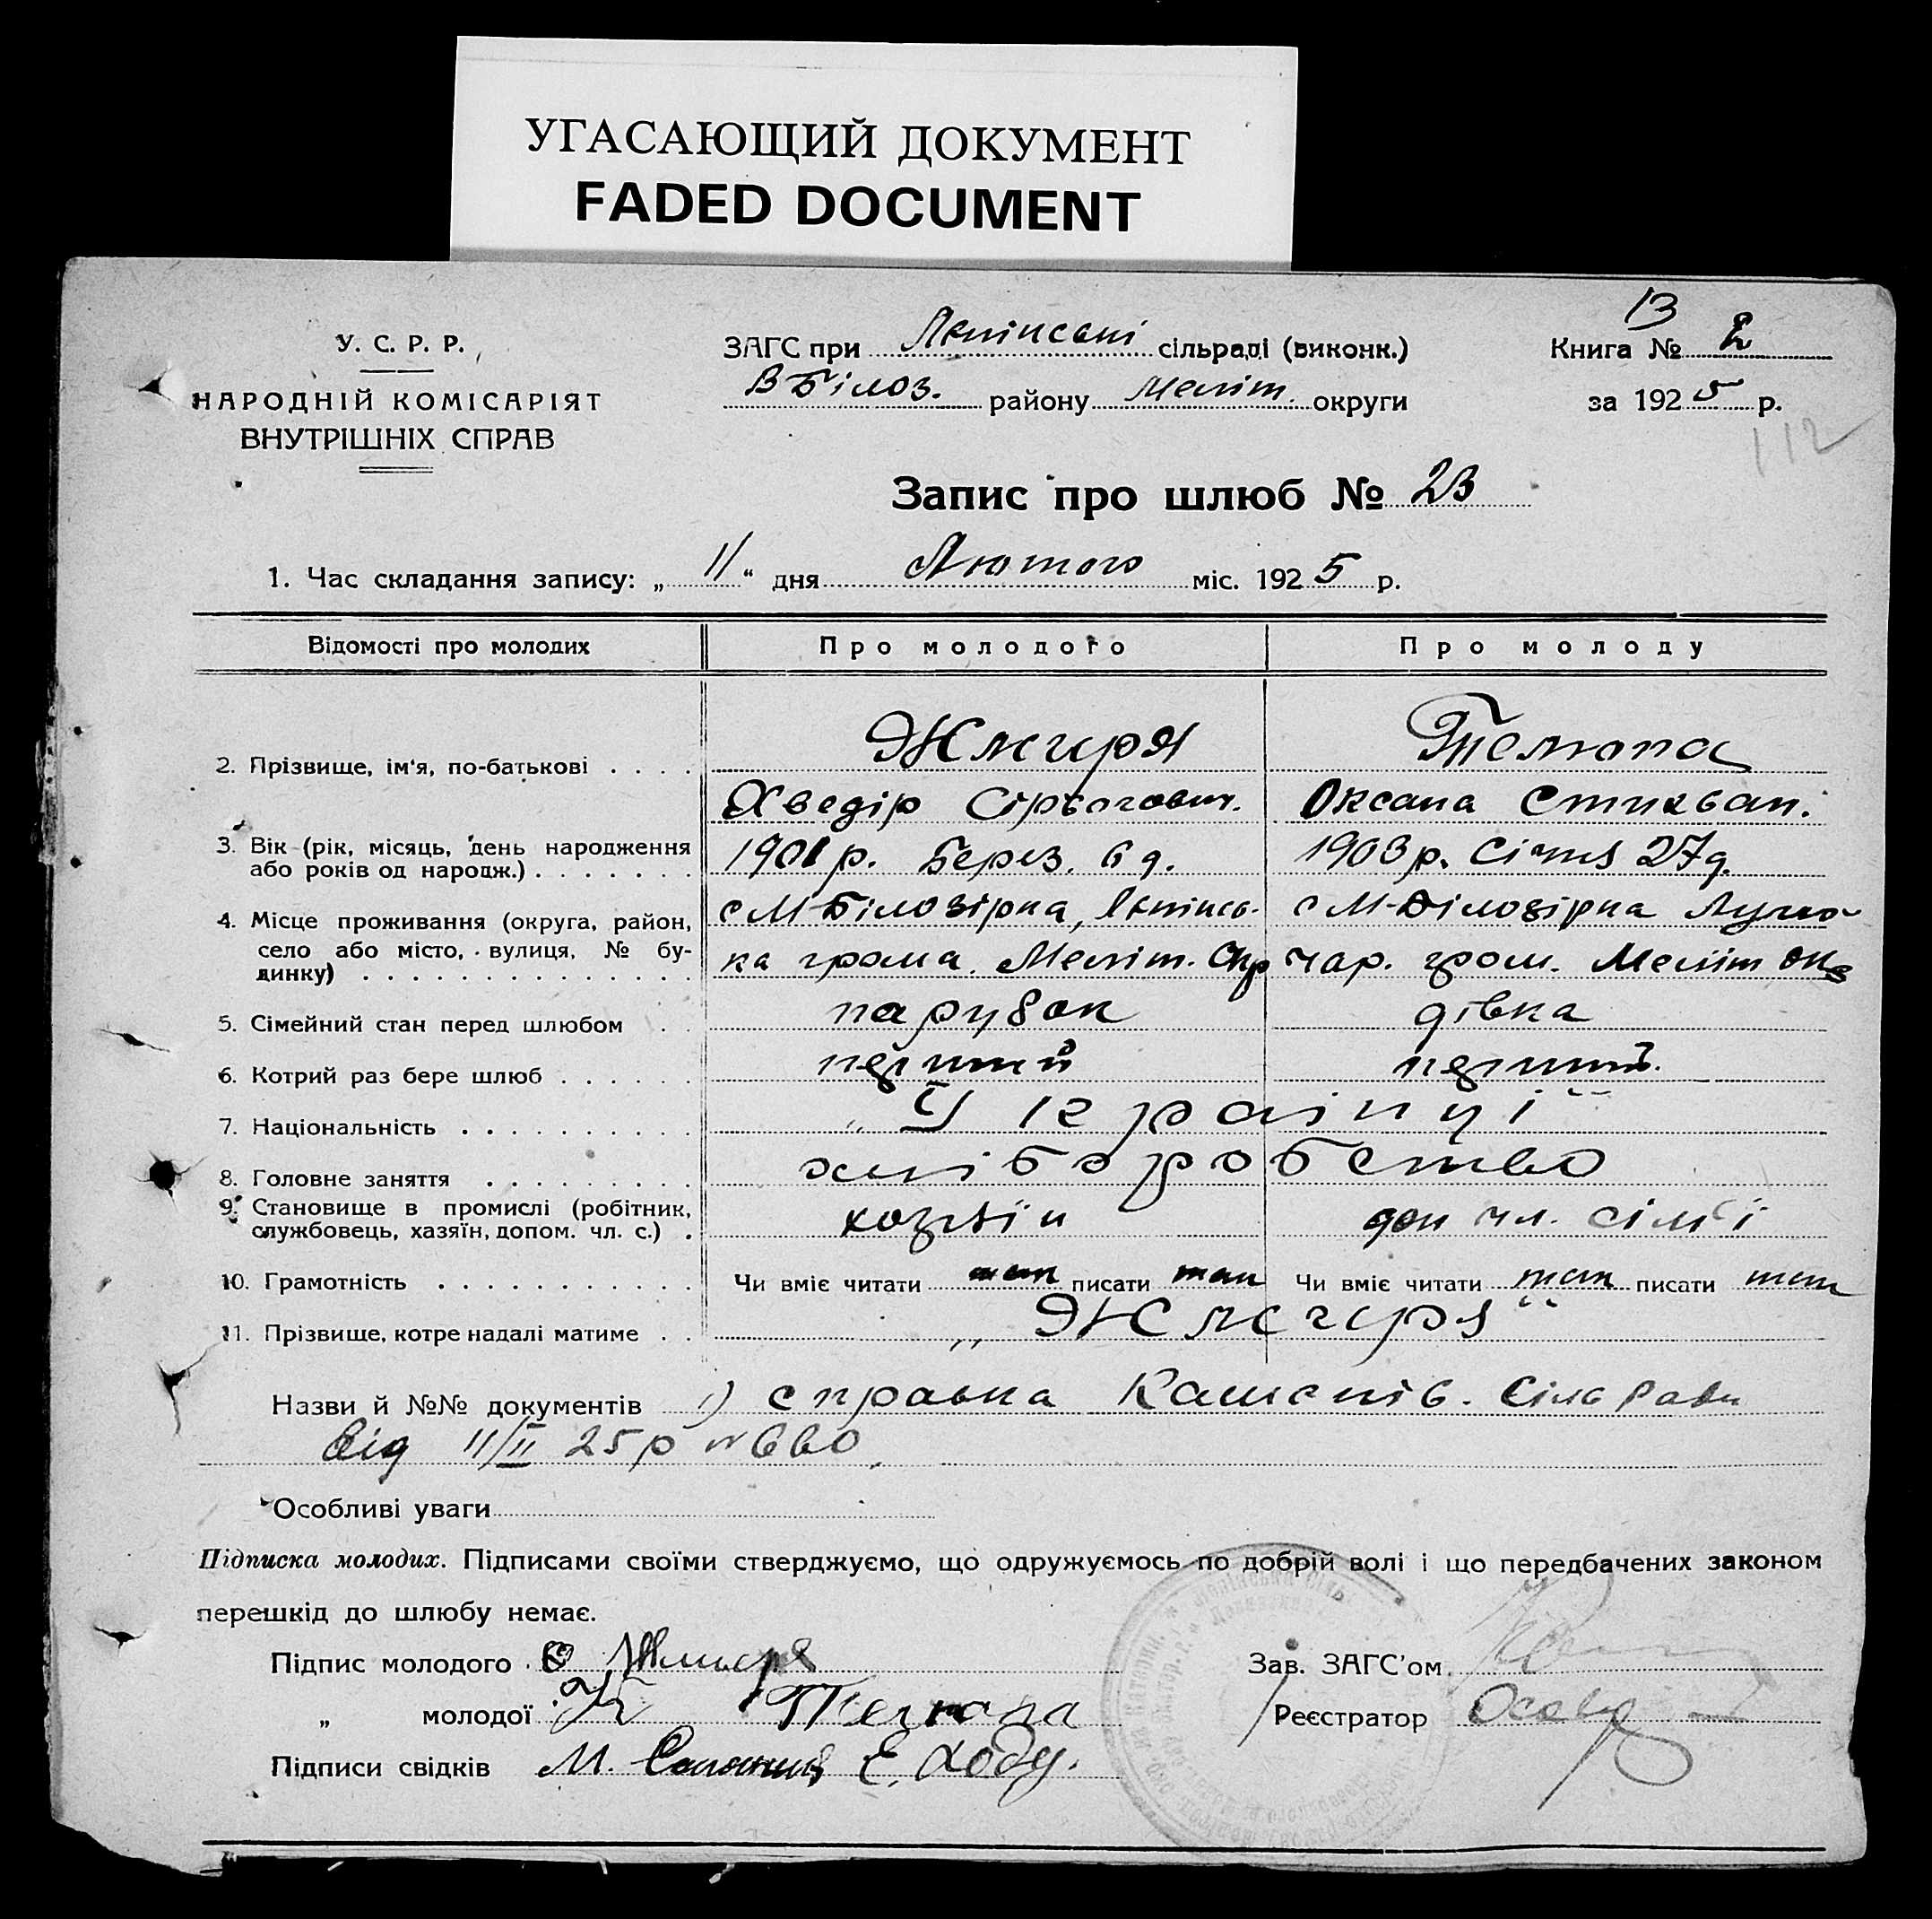 УГАСАЮЩИЙ ДОКУМЕНТ
FADED DOCUMENT
13
У. С. Р. Р.
НАРОДНІЙ КОМІСАРІЯТ
ВНУТРІШНІХ СПРАВ
ЗАГС при Ленінські сільраді (виконк.)
В Білоз. району Меліт. округи
Книга № 2
за 1925 р.
112
Запис про шлюб № 23
1. Час складання запису: „ 11 “ дня Лютого міс. 1925 р.
Відомості про молодих Про молодого Про молоду
2. Прізвище, ім'я, по-батькові . . . . Жмигря
Хведір Сірьогович. Оксана Степван.
3. Вік (рік, місяць, день народження
або років од народж.) . . . . . . . 1901 р. Берез. 6 д. 1903 р. Січня 27 д.
4. Місце проживання (округа, район,
село або місто, вулиця, № бу-
динку) . . . . . . . . . . . . .
с М-Білозірка, Ленінсь-
ка грома. Меліт. Окр
с М-Білозірка Луна-
чар. гром. Меліт Окр
5. Сімейний стан перед шлюбом . . парубок дівка
6. Котрий раз бере шлюб . . . . . . перший перший.
7. Національність . . . . . . . . . . „Українці“
8. Головне заняття . . . . . . . . . хліборобство
9. Становище в промислі (робітник,
службовець, хазяїн, допом. чл. с.) . хозяїн доп чл. сімї
10. Грамотність . . . . . . . . . . . Чи вміє читати так писати так Чи вміє читати так писати так
11. Прізвище, котре надалі матиме . . „Жмигря“
Назви й №№ документів 1) справка Сіль Ради
від 11/II 25 р № 660
Особливі уваги
Підписка молодих. Підписами своїми стверджуємо, що одружуємось по добрій волі і що передбачених законом
перешкід до шлюбу немає.
Підпис молодого
Зав. ЗАГС'ом
„ молодої
Реєстратор
Підписи свідків М.